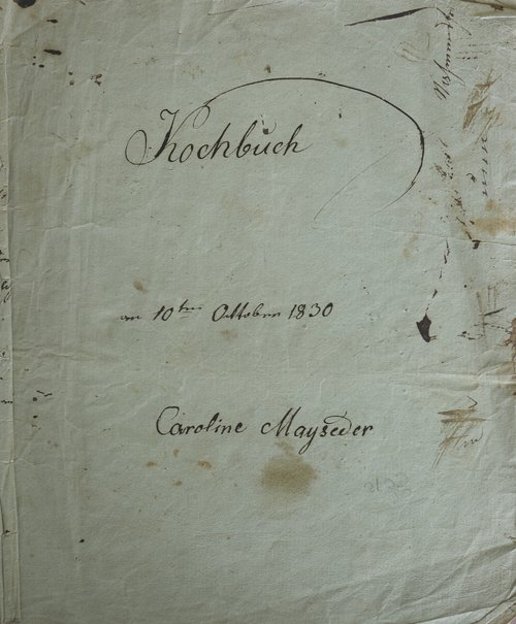 Kochbuch
am 10ten October 1830
Caroline Mayseder